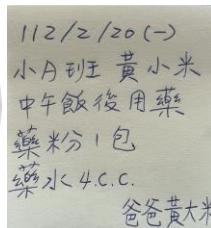 112/2/20(一)
小月班 黃小米
中午飯後用藥
藥粉1包
藥水4.C.C.
爸爸黃大米